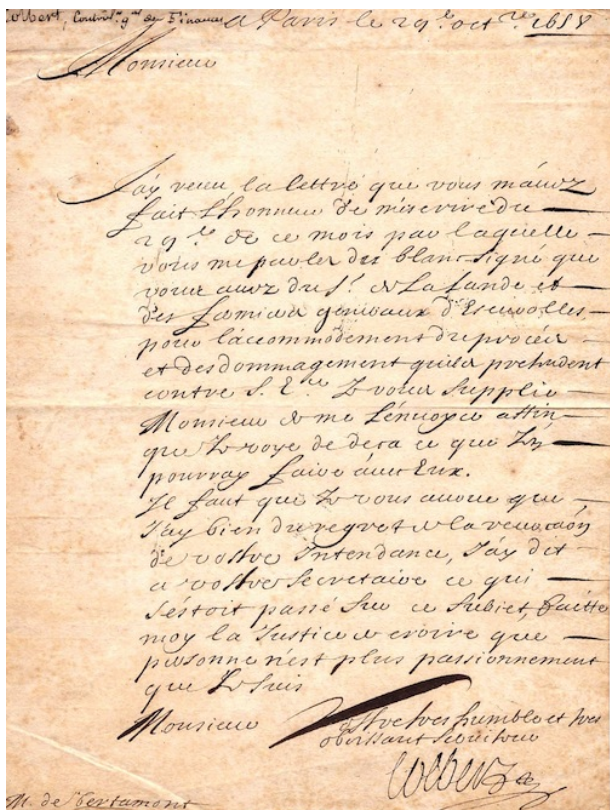 Colbert, Control. g.al des Finances A Paris le 29.e oct.re 1658
Monsieur
J'ay receu la lettre que vous m'auez
fait l'honneur de m'escrire du
29.e de ce mois par laquelle
vous me parlez du blanc signé que
vous auez du s.r de La Lande et
des fermiers generaux d'Escurolles,
pour l'accommodement du procez
et des dommagement qu'ils pretendent
contre S. E.ce Je vous supplie
Monsieur de me l'enuoyer affin
que Je voye de deca ce que J'en
pourray faire auec Eux.
Il faut que Je vous auoue que
J'ay bien du regret de la reuocaon
de vostre Intendance, J'ay dit
a vostre Secretaire ce qui
s'estoit passé sur ce subiet, faitte
moy la Justice de croire que
personne n'est plus passionnement
que Je suis
Monsieur Vostre tres humble et tres
obeissant seruiteur
Colbert
M. de Bertamont